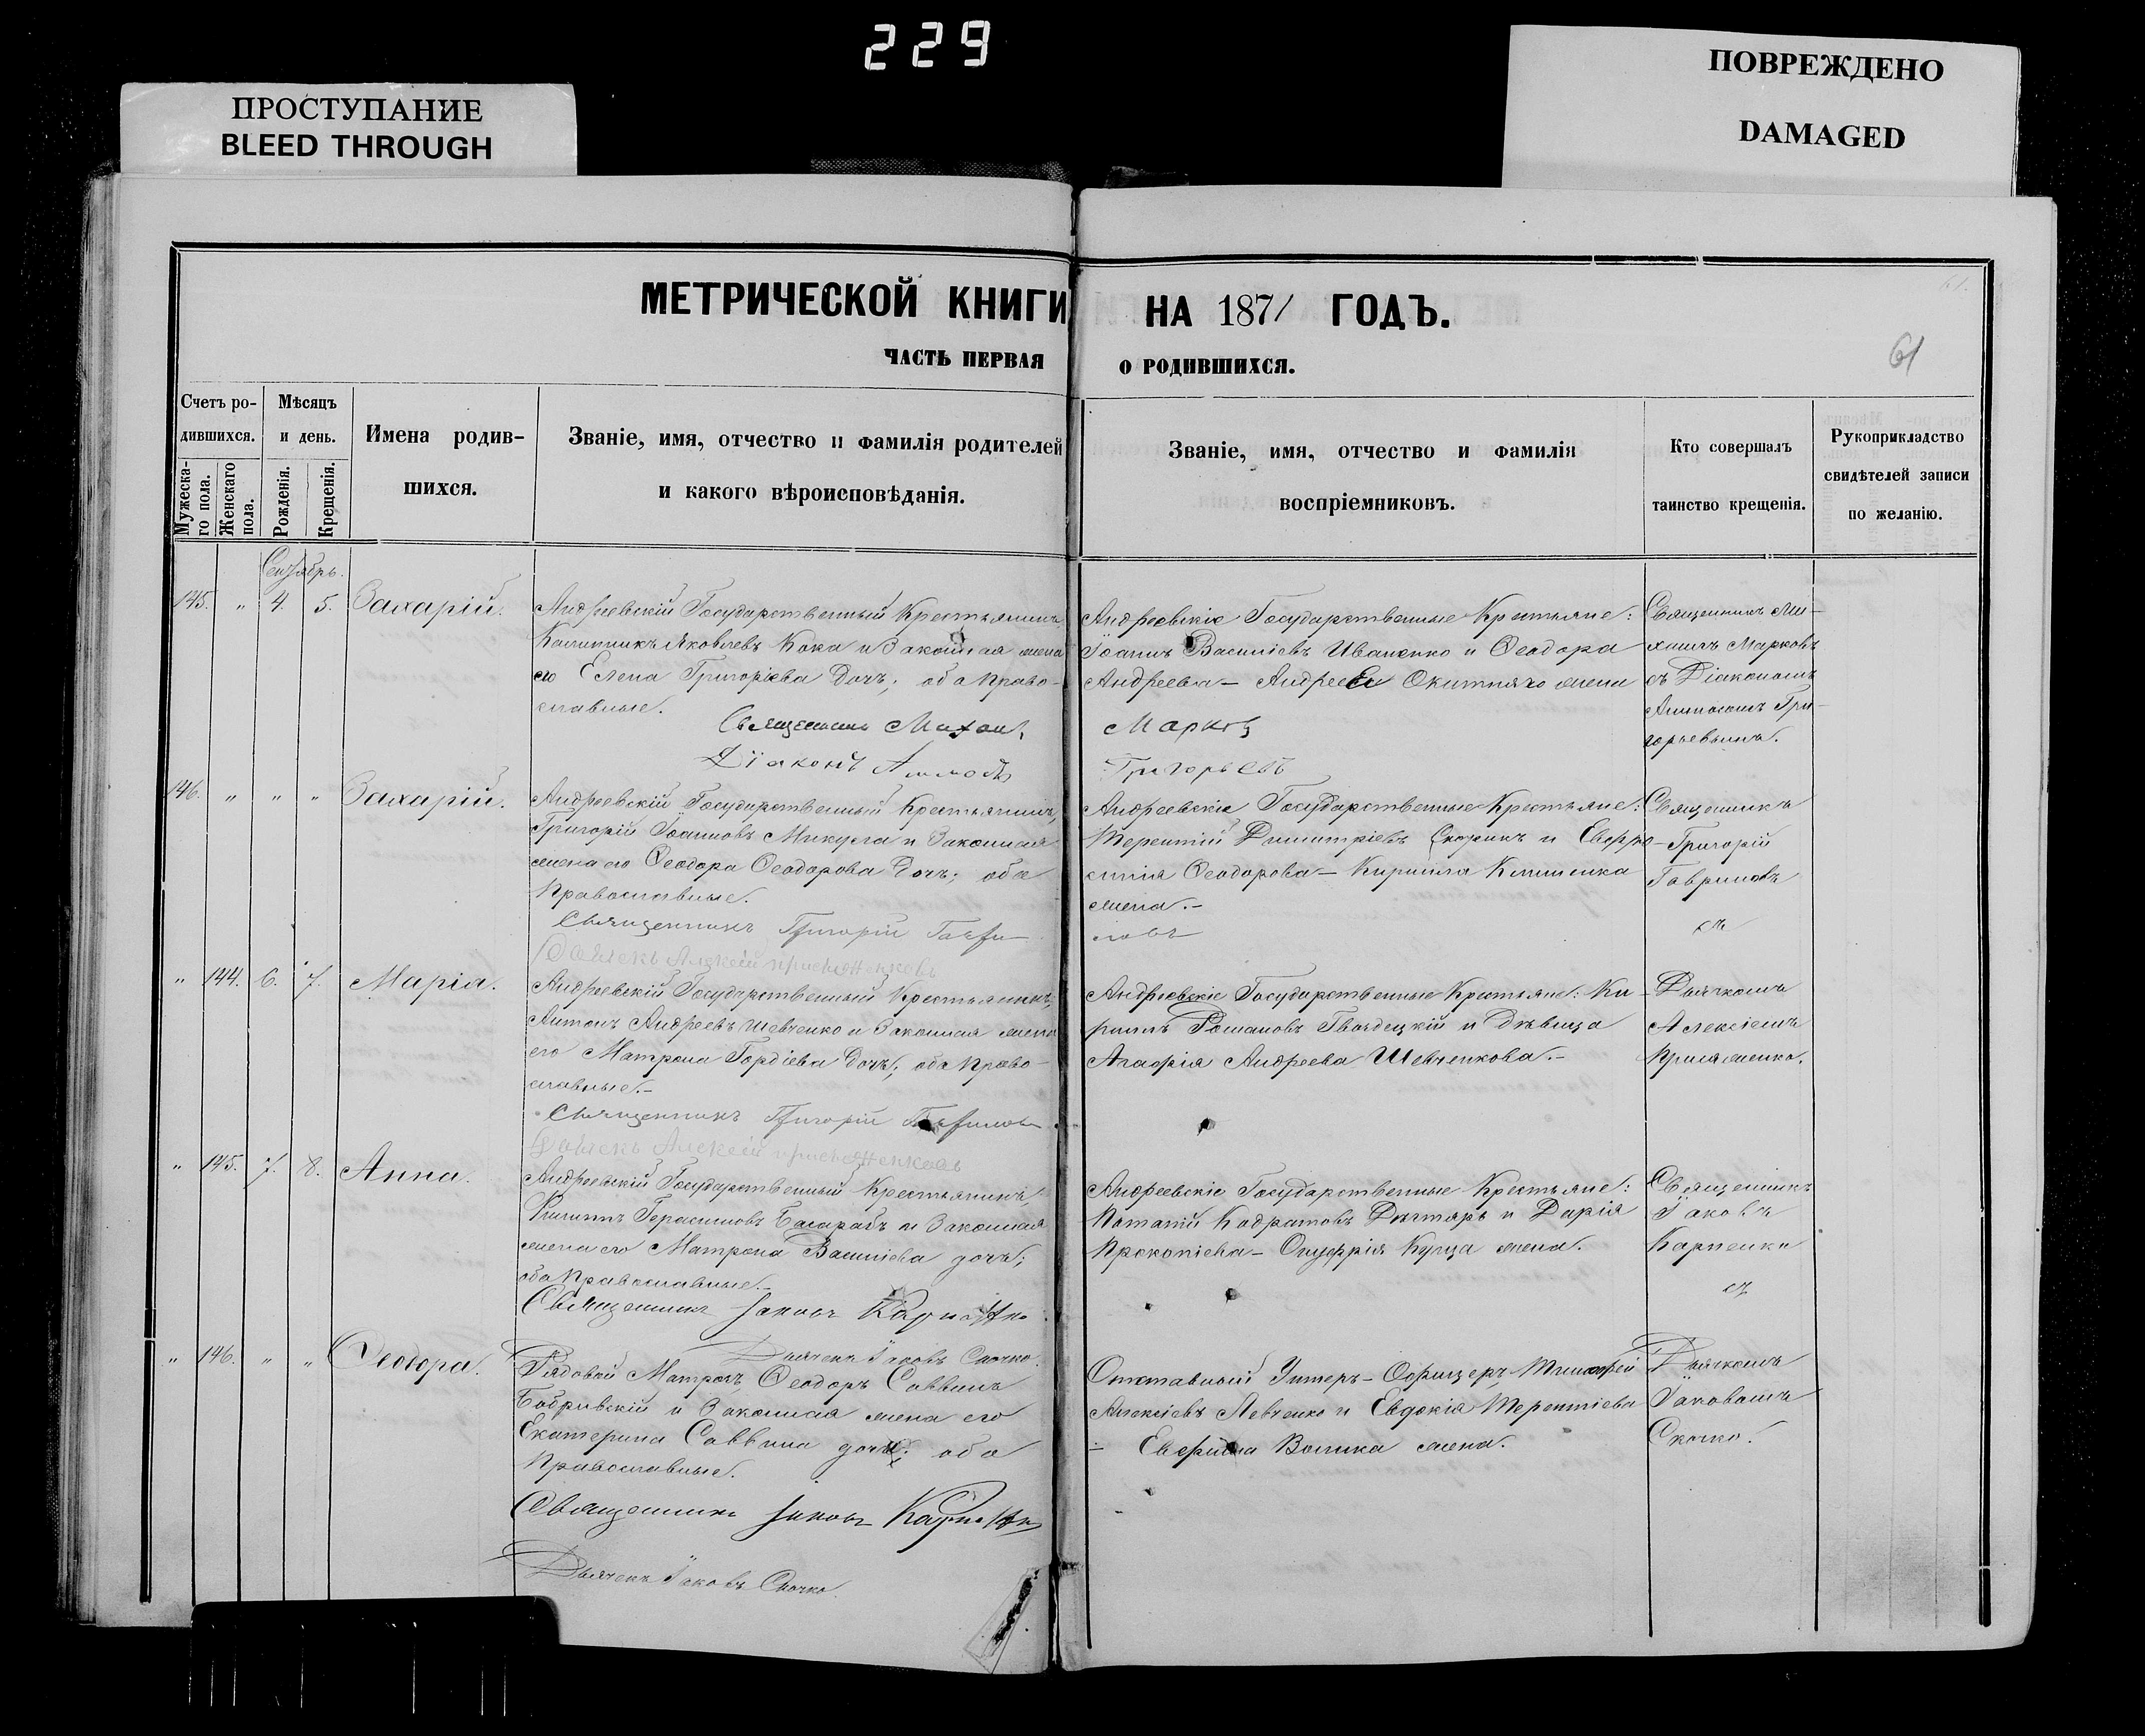 229
ПРОСТУПАНИЕ
BLEED THROUGH
ПОВРЕЖДЕНО
DAMAGED
МЕТРИЧЕСКОЙ КНИГИ НА 1871 ГОДЪ.
ЧАСТЬ ПЕРВАЯ О РОДИВШИХСЯ.
61
Счетъ ро-
дившихся.
Мужеска-
го пола.
Женскаго
пола.
Мѣсяцъ
и день.
Рожденія.
Крещенія.
Имена родив-
шихся.
Званіе, имя, отчество и фамилія родителей
и какого вѣроисповѣданія.
Званіе, имя, отчество и фамилія
воспріемниковъ.
Кто совершалъ
таинство крещенія.
Рукоприкладство
свидѣтелей записи
по желанію.
Сентябрь.
145. " 4. 5. Захарій.
Андреевскій Государственный Крестьянинъ
Калинникъ Яковлевъ Кока и Законная жена
его Елена Григоріева дочь; оба право-
славные.
Священникъ Михаилъ Марковъ
Діаконъ Григорьевъ
Андреевскіе Государственные Крестьяне:
Іоаннъ Василіевъ Иваненко и Ѳеодора
Андреева – Андрея Окитняго жена
Священникъ Ми-
хаилъ Марковъ
съ Діакономъ
Гри-
горьевымъ.
146. " " " Захарій.
Андреевскій Государственный Крестьянинъ,
Григорій Іоанновъ Микула и Законная
жена его Ѳеодора Ѳеодорова дочь; оба
Православные.
Священникъ Григорій Гаври-
ловъ
Дьячекъ Алексій
Андреевскіе Государственные Крестьяне:
Терентій Димитріевъ Скорикъ и Евфро-
синія Ѳеодорова – Кирилла Клименка
жена.–
Священникъ
Григорій
Гавриловъ
съ
" 144. 6. 7. Марія.
Андреевскій Государственный Крестьянинъ,
Антонъ Андреевъ Шевченко и Законная жена
его Матрона Гордіева дочь; оба Право-
славные.–
Священникъ Григорій Гавриловъ
Дьячекъ Алексій
Андреевскіе Государственные Крестьяне: Ки-
риллъ Романовъ Гвоздецкій и дѣвица
Агафія Андреева Шевченкова.–
Дьячкомъ
Алексіемъ
" 145. 7. 8. Анна.
Андреевскій Государственный Крестьянинъ,
Филиппъ Герасимовъ Басарабъ и Законная
жена его Матрона Василіева дочь;
оба Православные.–
Священникъ Іаковъ Карпенко
Дьячекъ Іаковъ Скочко.
Андреевскіе Государственные Крестьяне:
Потапій Кодратовъ Дегтярь и Дарія
Прокопіева – Онуфрія Купца жена.
Священникъ
Іаковъ
Карпенко
съ
" 146. " " Ѳеодора.
Рядовой Матрозъ, Ѳеодоръ Саввинъ
Бобривскій и Законная жена его
Екатерина Саввина дочь; оба
Православные.
Священникъ Іаковъ Карпенко
Дьячекъ Іаковъ Скочко
Отставный Унтеръ-Офицеръ, Тимофей
Алексіевъ Левченко и Евдокія Терентіева
– Волика жена.
Дьячкомъ
Іаковомъ
Скочко.